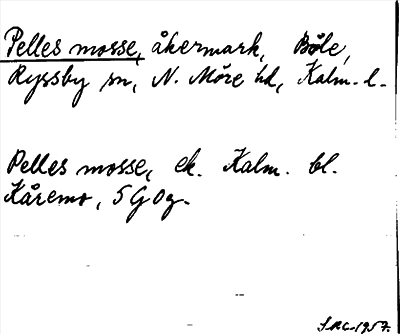 Pelles mosse, åkermark, Böle,
Ryssby sn, N. Möre hd, Kalm. l.
Pelles mosse, ek. Kalm. bl.
Kåremo, 5 G 0 g.
1957.